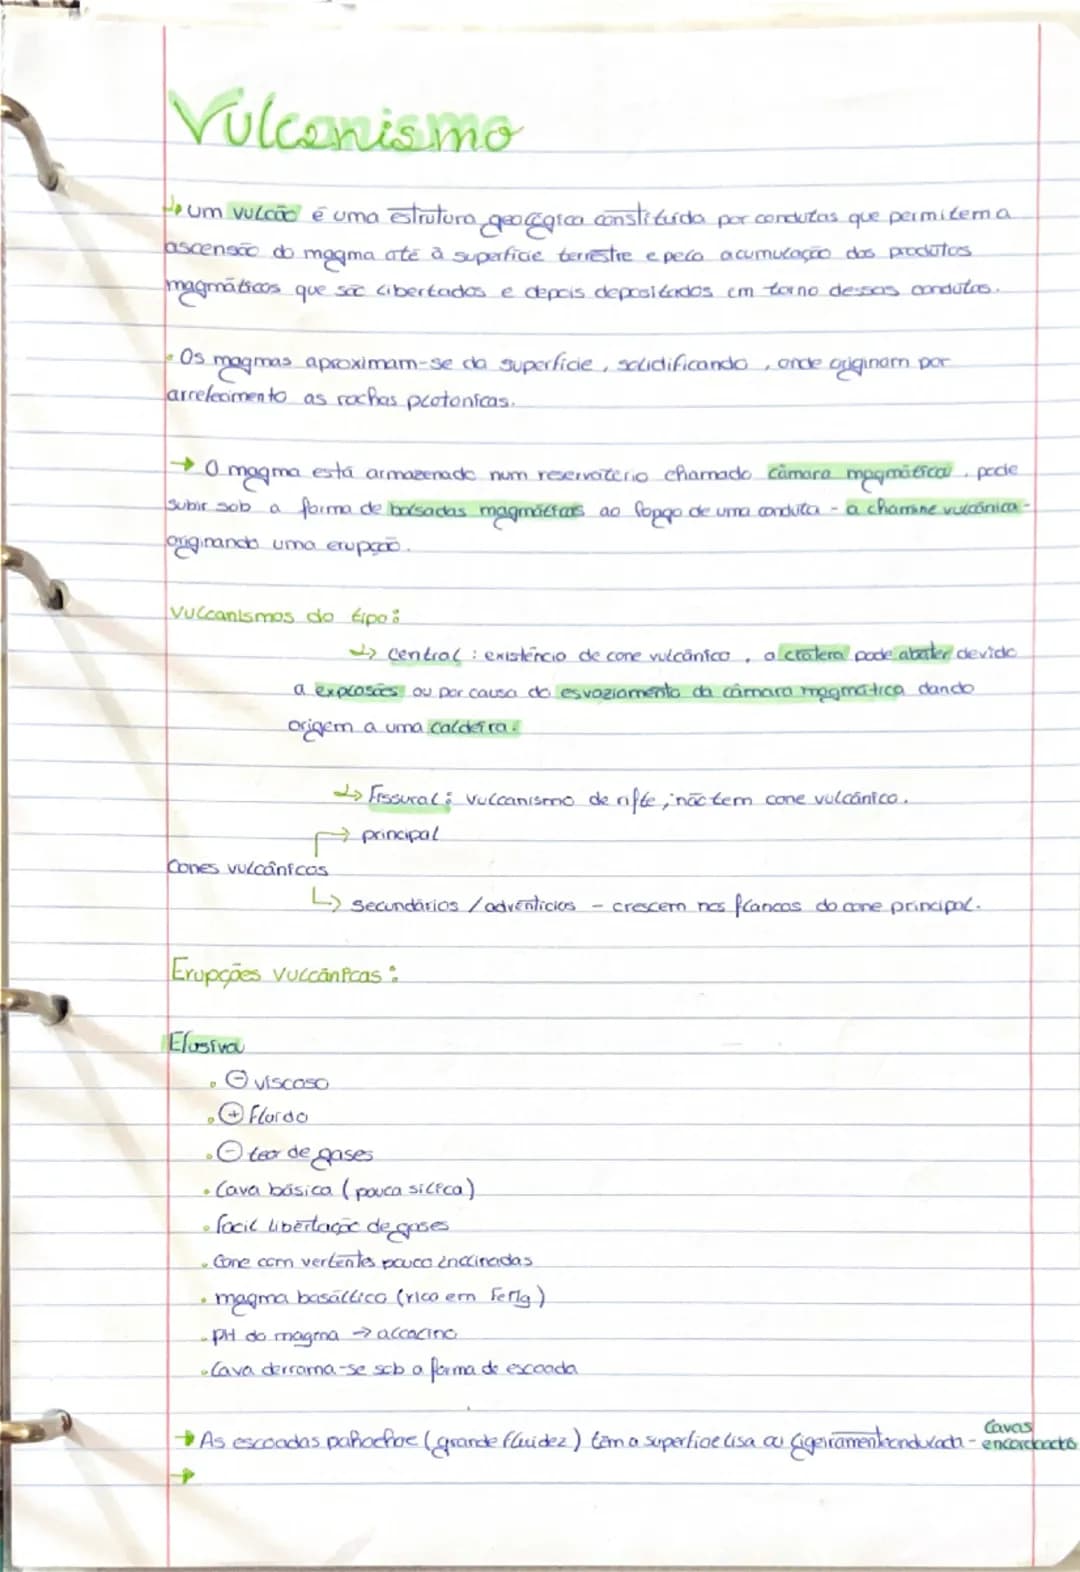 Vulcanismo
↳ um vulcão é uma estrutura geológica constituída por condutas que permitem a
ascensão do magma até à superfície terrestre e pela acumulação dos produtos
magmáticos que são libertados e depois depositados em torno dessas condutas.
• Os magmas aproximam-se da superfície, solidificando, onde originam por
arrefecimento as rochas plotonicas.
→ O magma está armazenado num reservatório chamado câmara magmática, pode
subir sob a forma de bolsadas magmáticas ao longo de uma conduta - a chaminé vulcânica -
originando uma erupção.
Vulcanismos do tipo:
↳ Central: existência de cone vulcânico, a cratera pode abater devido
a explosões ou por causa do esvaziamento da câmara magmática dando
origem a uma caldeira.
↳ Fissural: vulcanismo de rifte, não tem cone vulcânico.
→ principal
Cones vulcânicos
↳ secundários / adventicios - crescem nos flancos do cone principal.
Erupções vulcânicas:
Efusiva
• ⊖ viscoso
• ⊕ fluido
• ⊖ teor de gases
• lava básica (pouca sílica)
• fácil libertação de gases
• Cone com vertentes pouco inclinadas
• magma basáltico (rico em FeMg)
• PH do magma → alcalino
• Lava derrama-se sob a forma de escoada
→ As escoadas pahoehoe (grande fluidez) têm a superfície lisa ou ligeiramente ondulada - Lavas
encordoadas
→